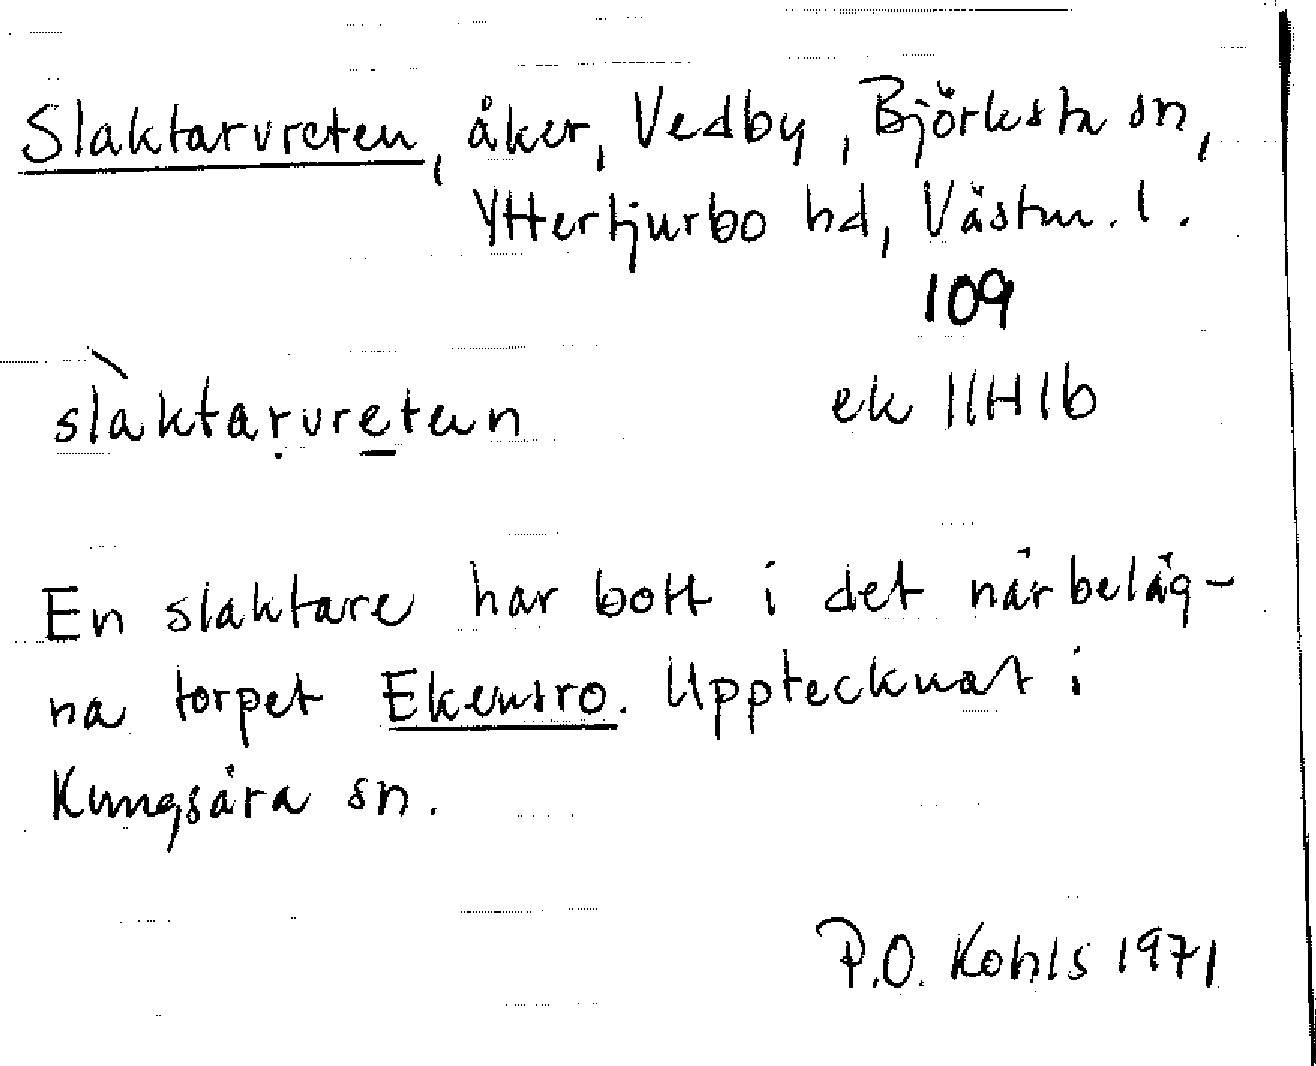 Slaktarvreten, åker, Vedby, Björksta sn,
Yttertjurbo hd, Västm. l.
109
slàktarvreten ek 11H1b
En slaktare har bott i det närbeläg-
na torpet Ekensro. Upptecknat i
Kungsåra sn.
P.O. Kohls 1971